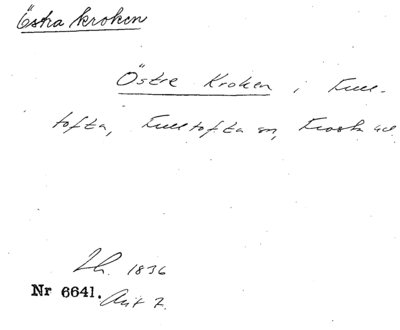 Östra kroken
Östre Kroken i Full-
tofta, Fulltofta sn, Frosta
1836
Nr 6641. Akt 7.